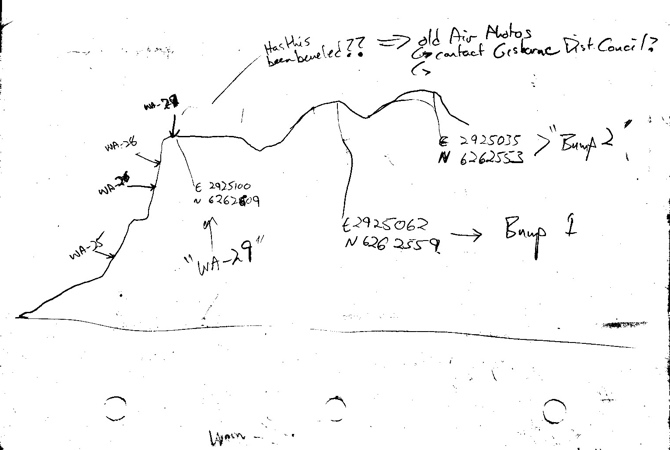 Has this
been beveled?? => old Air Photos
↳ contact Gisborne Dist. Council?
↳
WA-29
WA-28
WA-26
WA-25
E 2925100
N 6262609
"WA-29"
E 2925035
N 6262553
> "Bump 2"
E 2925062
N 6262559 → Bump 1